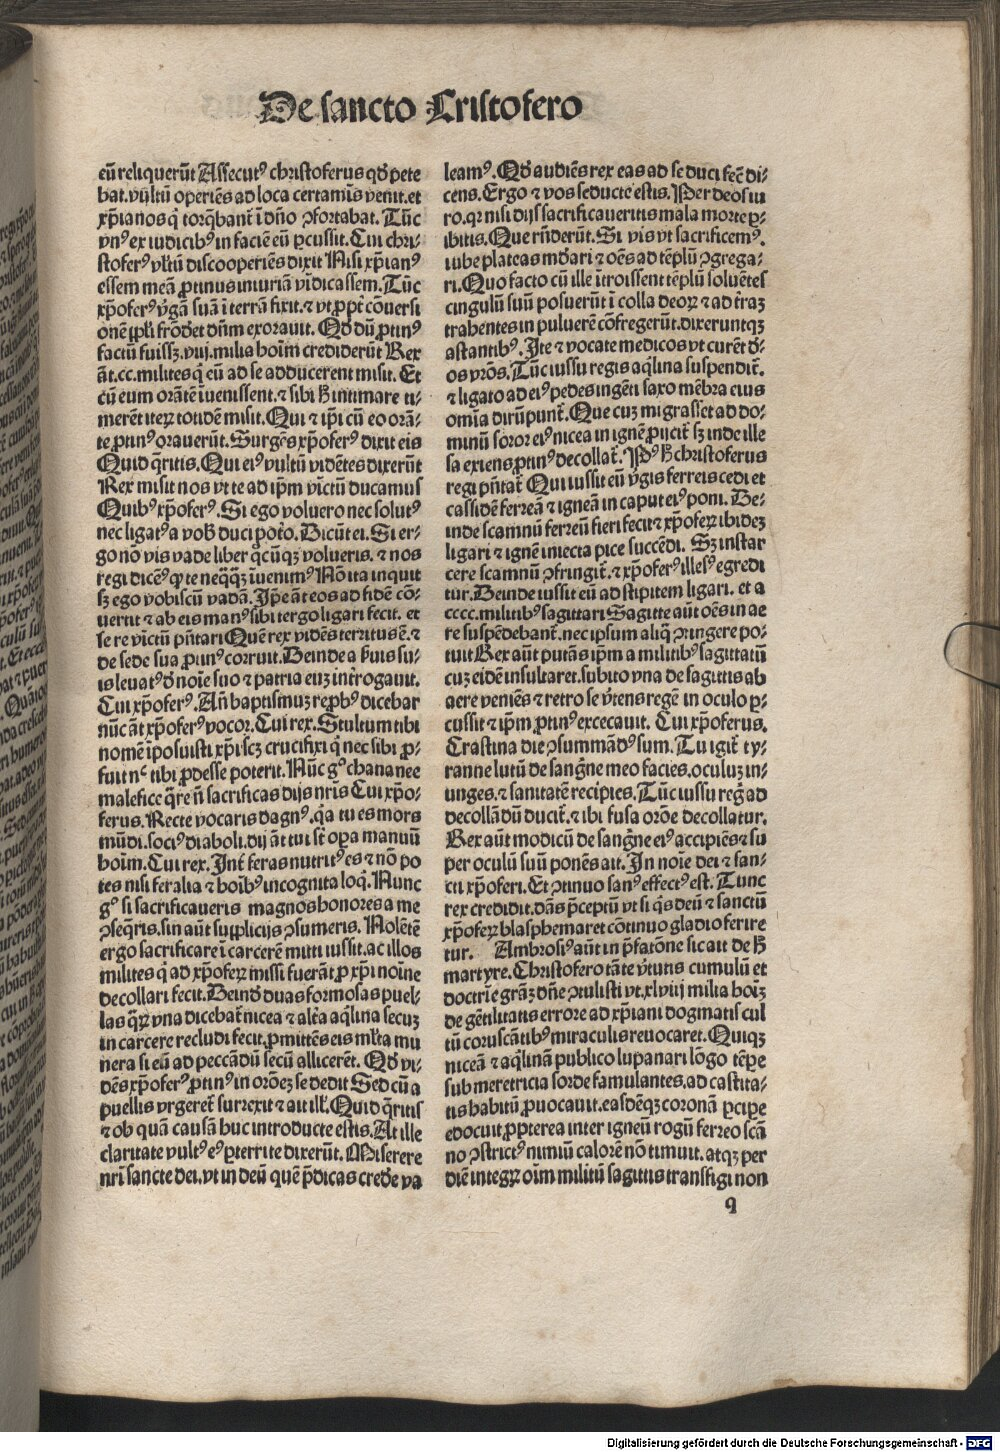 De sancto Cristofero
eū reliquerūt Assecutꝰ christoferus qđ pete
bat. vultū operiēs ad loca certamīs venit. et
xp̄ianos qͥ torq̄bant̄ ī dn̄o ↄfortabat. Tūc
vnꝰ ex iudicibꝰ in faciē eū ꝑcussit. Cui chri-
stoferꝰ vltū discooperiēs dixit Nisi xp̄ianꝰ
essem meā ꝓtinus iniuriā vīdicassem. Tūc
xp̄oferꝰ v̄gā suā ī terrā fixit. ⁊ vt ꝓpt̄ cōuersi
onē ppl̓i frōdet̄ dn̄m exorauit. Qđ dū ꝓtinꝰ
factū fuissꝫ. viij. milia hoīm crediderūt Rex
āt. cc. milites qͥ eū ad se adducerent misit. Et
cū eum orātē īuenissent. ⁊ sibi ħ intimare ti-
merēt iteꝝ totidē misit. Qui ⁊ ip̄i cū eo orā-
te ꝓtinꝰ orauerūt. Surgēs xp̄oferꝰ dixit eis
Quid q̄ritis. Qui eiꝰ vultū vidētes dixerūt
Rex misit nos vt te ad ip̄m vīctū ducamus
Quibꝰ xp̄oferꝰ. Si ego voluero nec solutꝰ
nec ligatꝰ a vob̄ duci poto. Dicūt ei. Si er-
go nō vis vade liber qͦcūqꝫ volueris. ⁊ nos
regi dicēꝰ ꝙ te neq̄q̄ꝫ īuenimꝰ Nō ita inquit
sꝫ ego vobiscū vadā. Ip̄e āt eos ad fidē cō-
uertit ⁊ ab eis manꝰ sibi tergo ligari fecit. et
se re vīctū p̄ntari Quē rex vidēs territus ē. ⁊
de sede sua ꝓtinꝰ corruit. Deinde a ẜuis su-
is leuatꝰ đ noīe suo ⁊ patria euꝫ int̄rogauit.
Cui xp̄oferꝰ. An̄ baptismuꝫ reꝓbꝰ dicebar
nūc āt xp̄oferꝰ vocor. Cui rex. Stultum tibi
nomē īposuisti xp̄i scꝫ crucifixi qͥ nec sibi ꝓ-
fuit nͨ tibi ꝓdesse poterit. Nūc gͦ chananee
malefice q̄re n̄ sacrificas dijs nr̄is Cui xp̄o-
ferus. Recte vocaris dagnꝰ. qa tu es mors
mūdi. sociꝰ diaboli. dij āt tui st̄ oꝑa manuū
hoīm. Cui rex. Int̄ feras nutritꝰ es ⁊ nō po
tes nisi feralia ⁊ hoībꝰ incognita loqͥ. Nunc
gͦ si sacrificaueris magnos honores a me
ↄseq̄ris. sin aūt supplicijs ↄsumeris. Nolētē
ergo sacrificare ī carcerē mitti iussit. ac illos
milites qͥ ad xp̄oferꝝ missi fuerāt ꝓ xp̄i noīne
decollari fecit. Deinđ duas formosas puel-
las qͣꝝ vna dicebat̄ nicea ⁊ alt̄a aq̄lina secuꝫ
in carcere recludi fecit. ꝓmittēs eis ml̓ta mu
nera si eū ad peccādū secū allicerēt. Qđ vi-
dēs xp̄oferꝰ ꝓtinꝰ in orōeꝫ se dedit Sed cū a
puellis vrgeret̄ surrexit ⁊ ait ill̓. Quid q̄ritis
⁊ ob quā causā huc introducte estis. At ille
claritate vultꝰ eꝰ ꝑterrite dixerūt. Miserere
nr̄i sancte dei. vt in deū quē p̄dicas credē va
leamꝰ. Qđ audiēs rex eas ad se duci fec̄ di-
cens. Ergo ⁊ vos seducte estis. Per deos iu
ro. qꝛ nisi dijs sacrificaueritis mala morte ꝑ-
ibitis. Que rn̄derūt. Si vis vt sacrificemꝰ.
iube plateas mūdari ⁊ oēs ad tēplū ↄgrega-
ri. Quo facto cū ille ītroissent tēplū soluētes
cingulū suū posuerūt ī colla deoꝝ ⁊ ad t̄raꝫ
trahentes in puluerē cōfregerūt. dixeruntqꝫ
astantibꝰ. Ite ⁊ vocate medicos vt curēt đ-
os vr̄os. Tūc iussu regis aq̄lina suspendit̄.
⁊ ligato ad eiꝰ pedes ingēti saxo mēbra eius
omīa dirūpunt̄. Que cuꝫ migrasset ad do-
minū soror eiꝰ nicea in ignē ꝓijcit̄ sꝫ inde ille
sa exiens ꝓtinꝰ decollat̄. Pꝰ ħ christoferus
regi p̄ntat̄ Qui iussit eū v̄gis ferreis cedi et
cassidē ferreā ⁊ igneā in caput eiꝰ poni. De-
inde scamnū ferreū fieri fecit ⁊ xp̄oferꝝ ibideꝫ
ligari ⁊ ignē iniecta pice succēdi. Sꝫ instar
cere scamnū ↄfringit̄. ⁊ xp̄oferꝰ illesꝰ egredi
tur. Deinde iussit eū ad stipitem ligari. et a
cccc. militibꝰ sagittari Sagitte aūt oēs in ae
re suspēdebant̄. nec ipsum aliq̄ ↄtingere po-
tuit Rex aūt putās ip̄m a militibꝰ sagittatū
cuꝫ eidē insultaret. subito vna de sagittis ab
aere veniēs ⁊ retro se v̄tens regē in oculo ꝑ-
cussit ⁊ ip̄m ꝓtinꝰ excecauit. Cui xp̄oferus.
Crastina die ↄsummādꝰ sum. Tu igit̄ ty-
ranne lutū de sanḡne meo facies. oculuꝫ in-
unges. ⁊ sanitatē recipies. Tūc iussu reḡ ad
decollādū ducit̄. ⁊ ibi fusa orōne decollatur.
Rex aūt modicū de sanḡne eiꝰ accipiēs ⁊ su
per oculū suū ponēs ait. In noīe dei ⁊ san-
cti xp̄oferi. Et ↄtinuo sanꝰ effectꝰ est. Tunc
rex credidit. dās p̄ceptū vt si qͥs deū ⁊ sanctū
xp̄oferꝝ blasphemaret cōtinuo gladio ferire
tur. Ambrosiꝰ aūt in p̄fatōne sic ait de ħ
martyre. Christofero tāte v̄tutis cumulū et
doctrīe grāꝫ dn̄e ↄtulisti vt. xlviij milia hoīꝫ
de gētilitatis errore ad xp̄iani dogmatis cul
tū coruscātibꝰ miraculis reuocaret. Quiqꝫ
niceā ⁊ aq̄linā publico lupanari lōgo tēꝑe
sub meretricia sorde famulantes. ad castita-
tis habitū ꝓuocauit. easdēqꝫ coronā ꝑciꝑe
edocuit. ꝓpterea inter igneū rogū ferreo scā
no ↄstrictꝰ nimiū calorē nō timuit. atqꝫ per
diē integꝝ oīm militū sagittis transfigi non
q
Digitalisierung gefördert durch die Deutsche Forschungsgemeinschaft - DFG